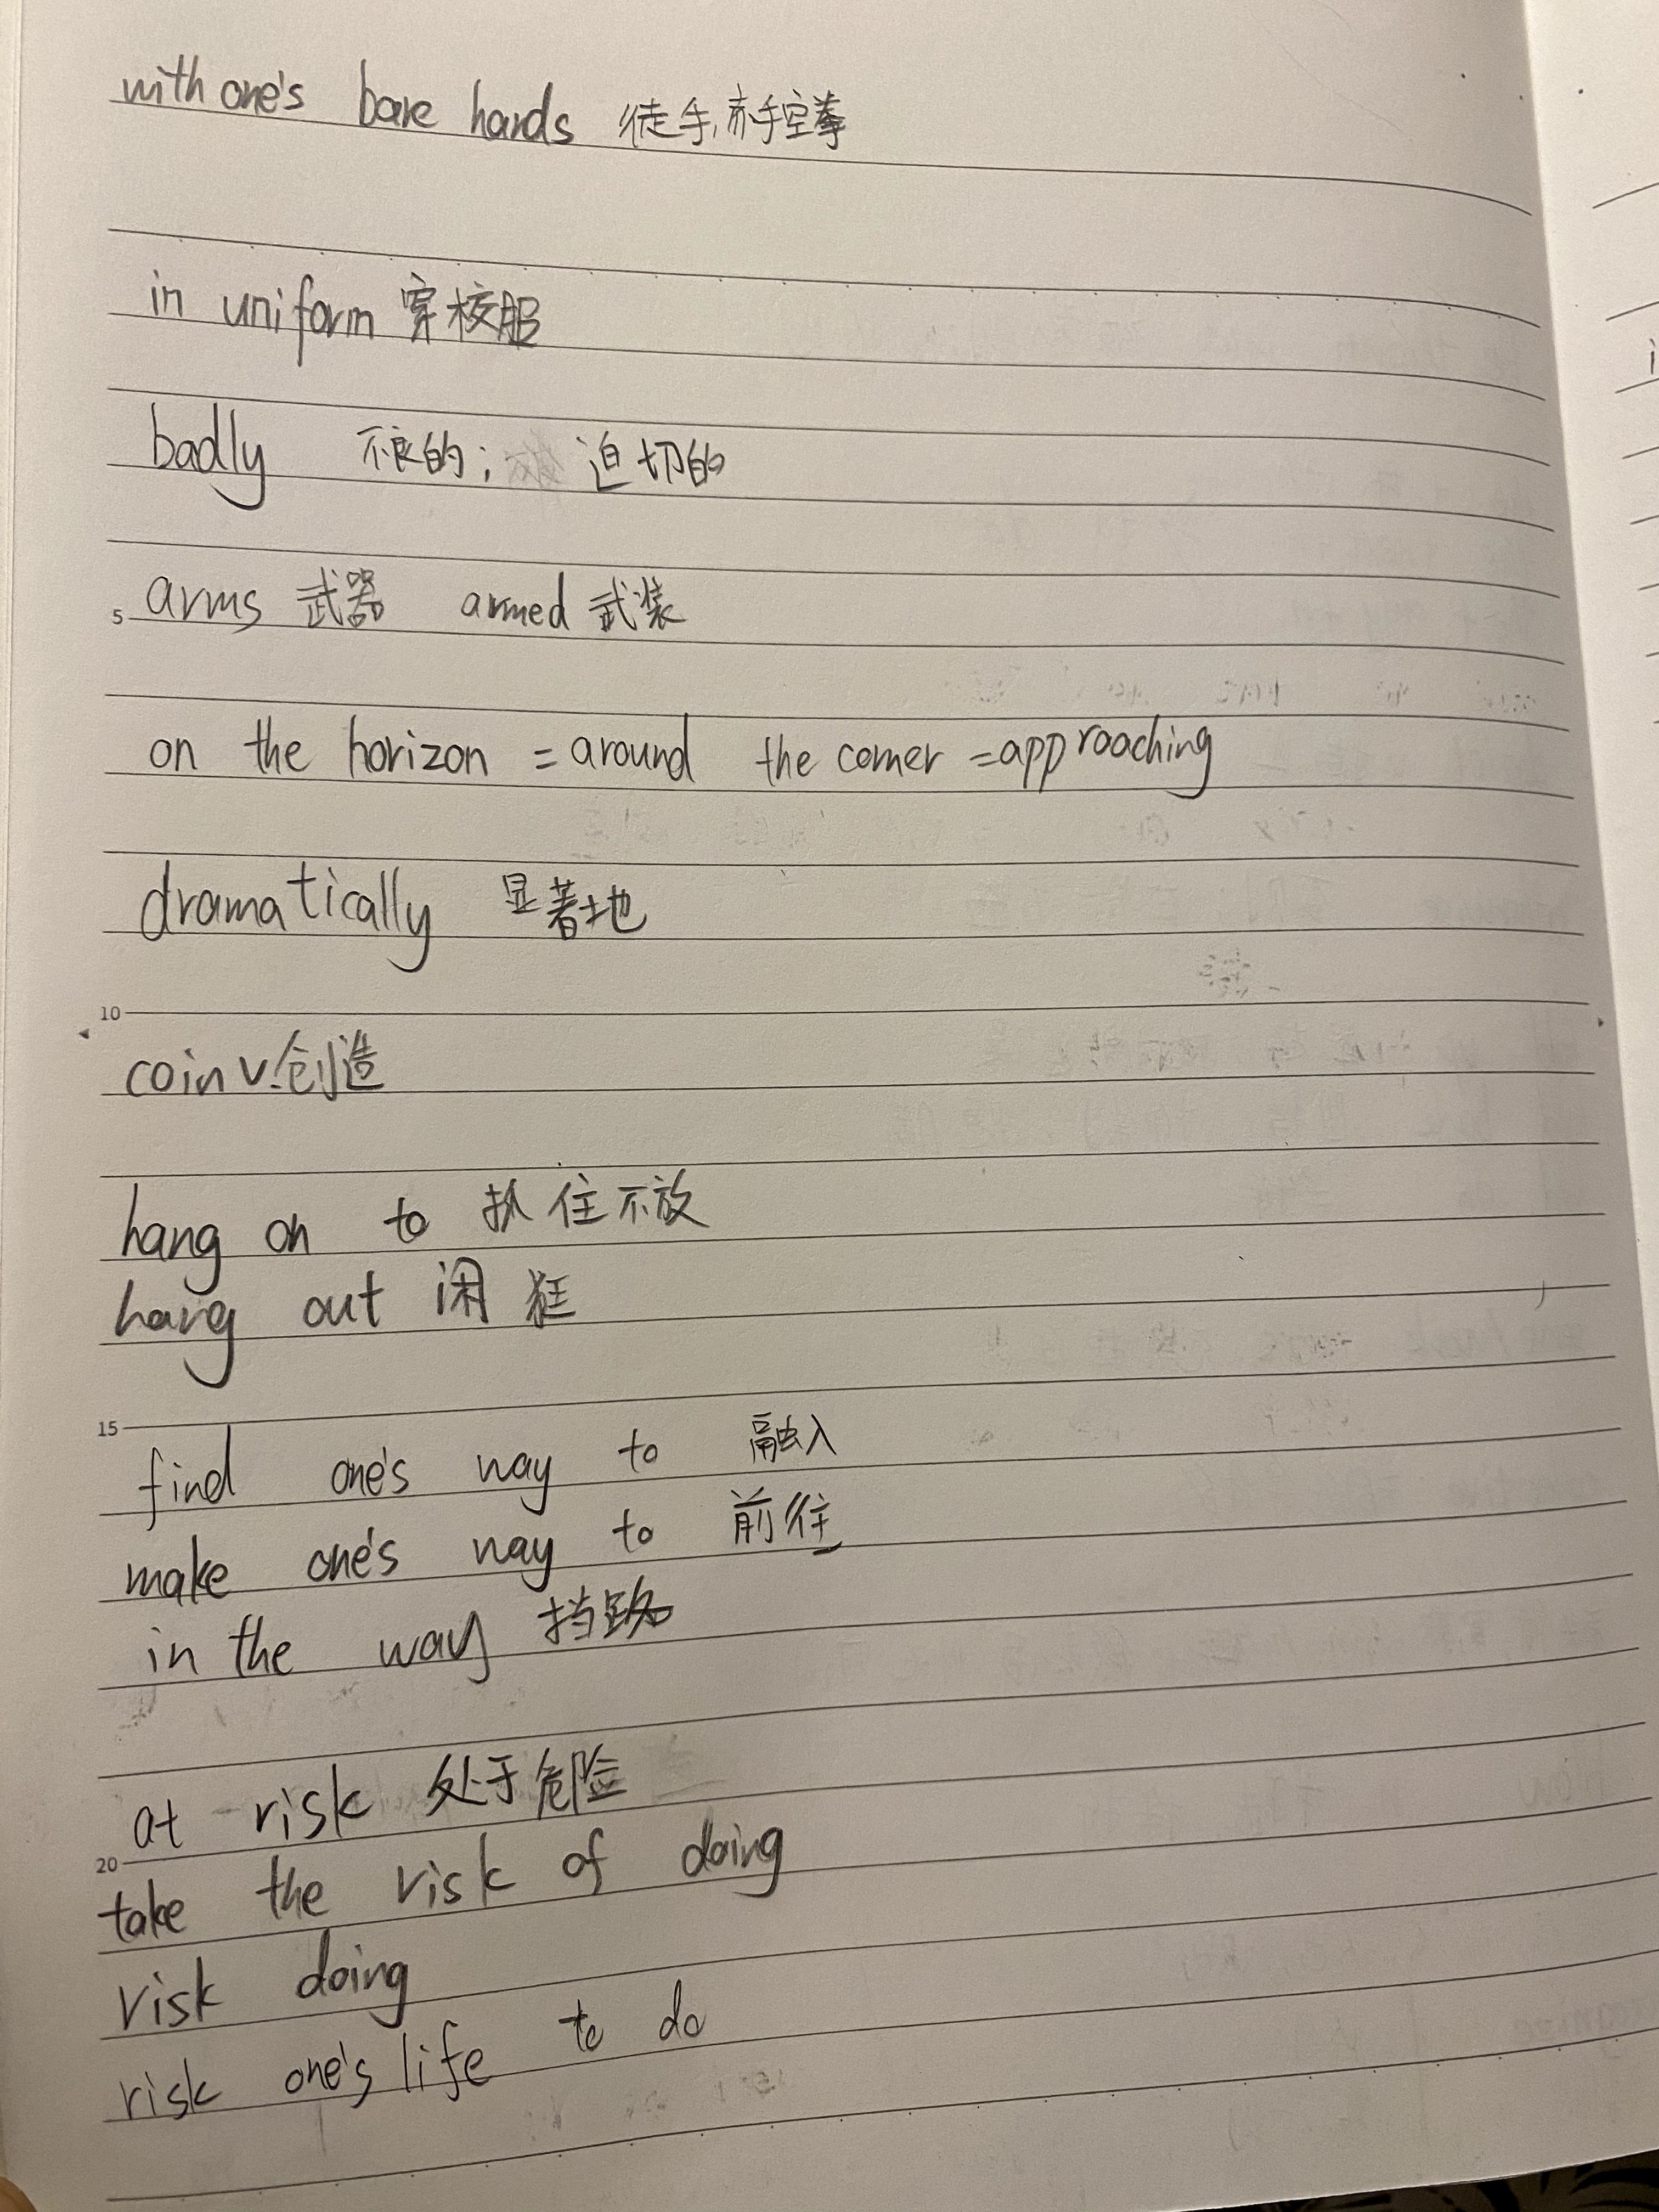 with one's bare hands 徒手,赤手空拳
in uniform 穿校服
badly 不良的; 迫切的
5 arms 武器 armed 武装
on the horizon = around the corner = approaching
dramatically 显著地
10
coin v.创造
hang on to 抓住不放
hang out 闲逛
15
find one's way to 融入
make one's way to 前往
in the way 挡路
at risk 处于危险
20 take the risk of doing
risk doing
risk one's life to do